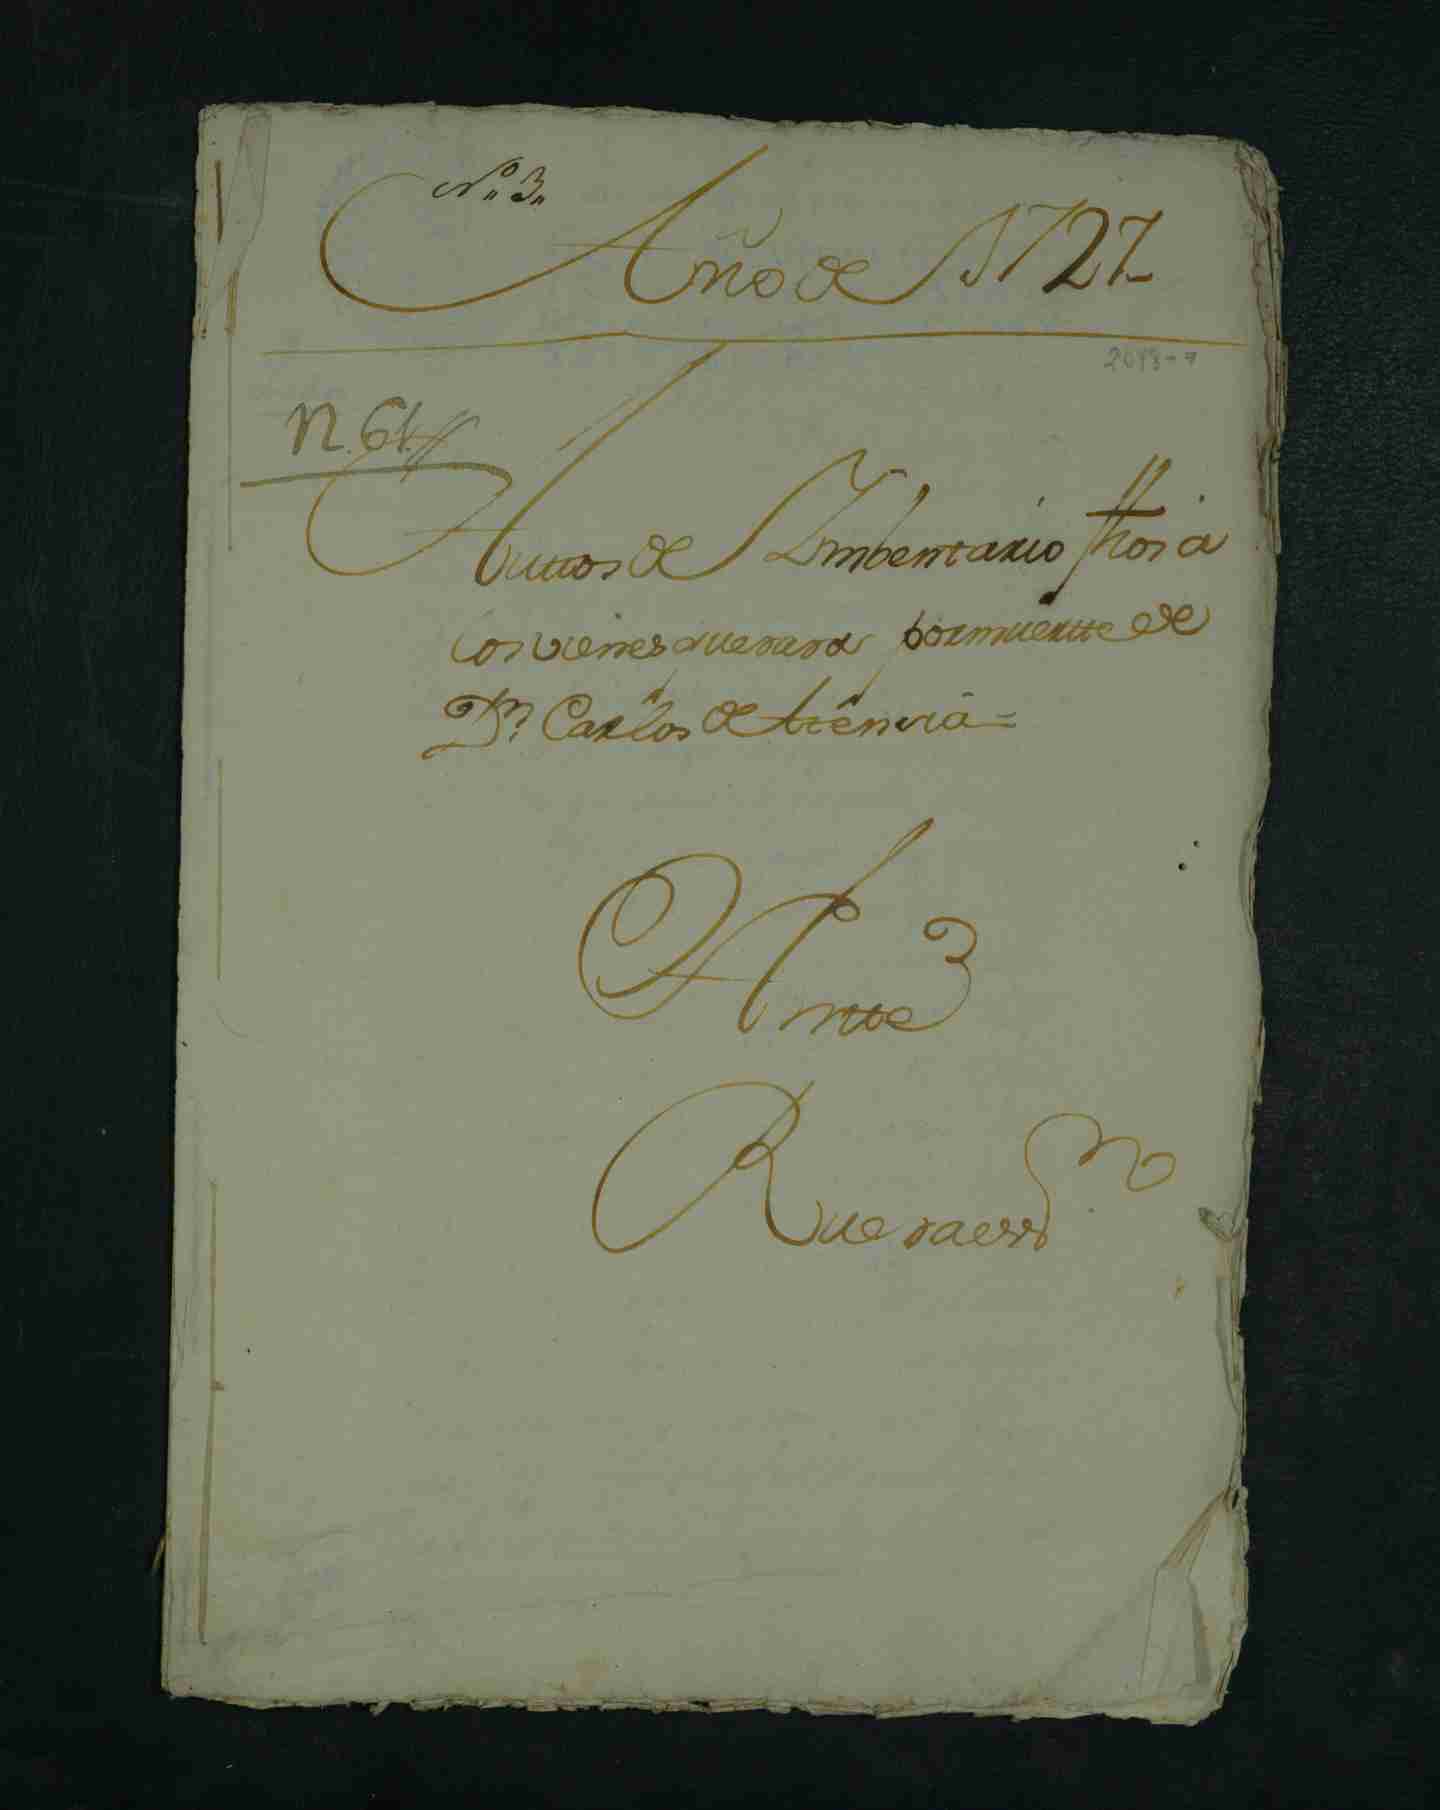 Nº 3
Año de 1727
2643-7
N. 61
Auttos de Imbentario fhos a
los vienes que nara por muertte de
Dn Carlos de Atencia =
Antte
Rueda essno